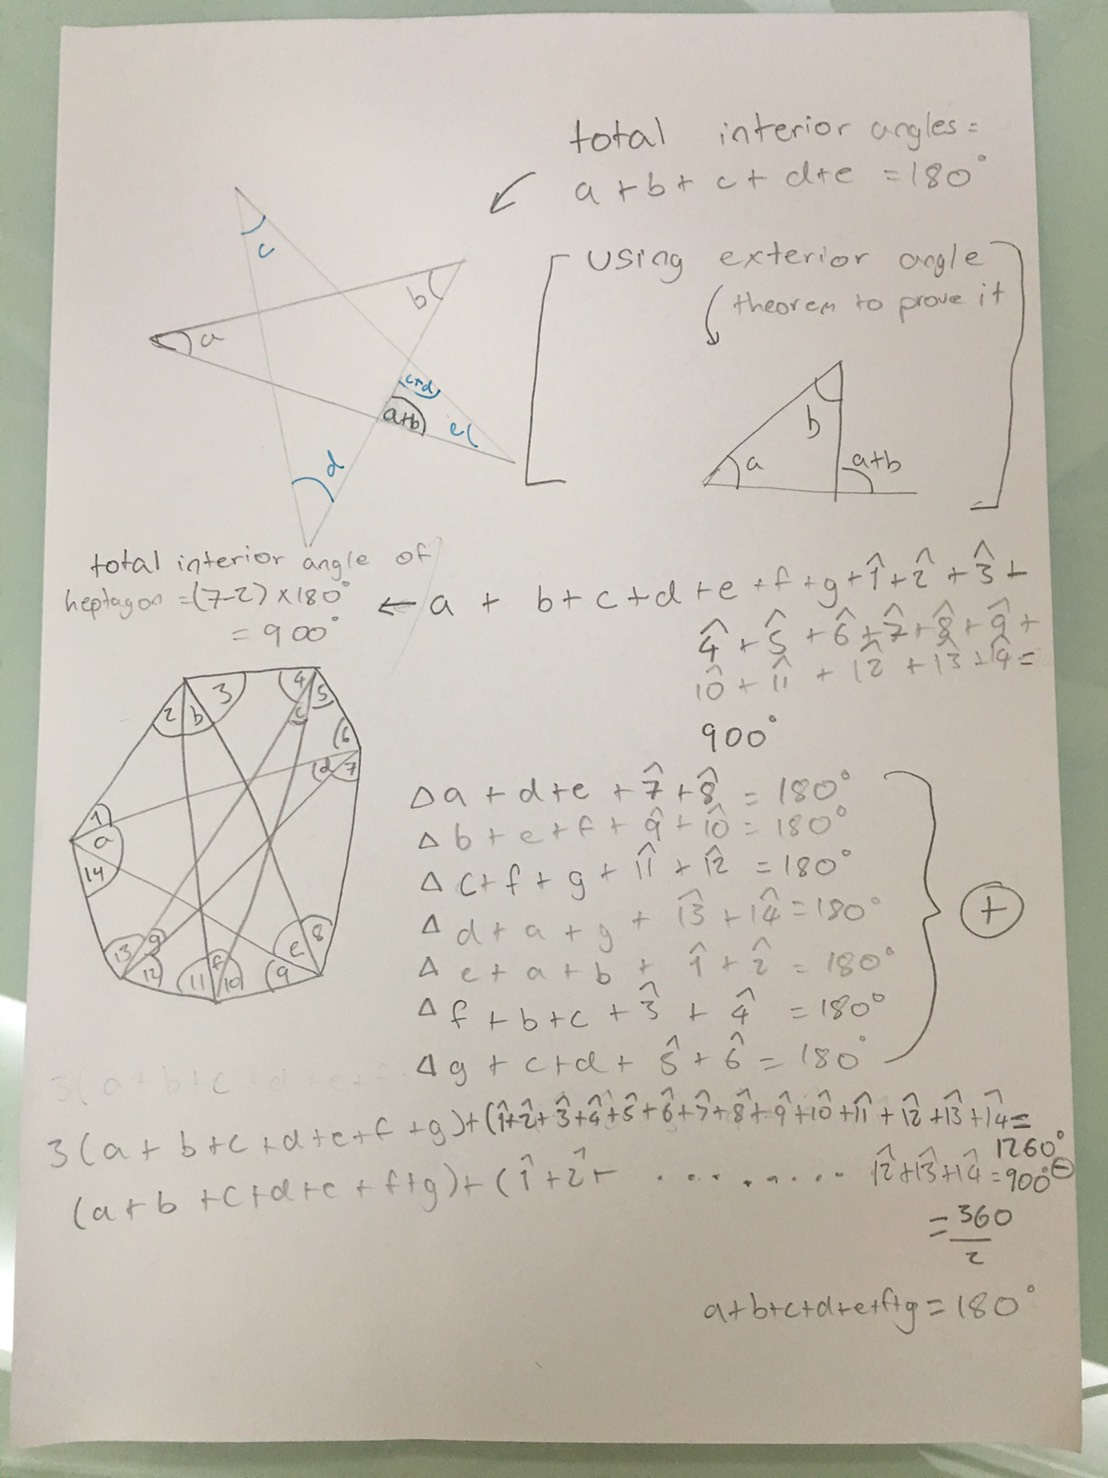 total interior angles =
a + b + c + d+e = 180°
c
b
a
c+d
a+b
e
d
using exterior angle
theorem to prove it
b
a
a+b
total interior angle of
heptagon = (7-2) × 180°
= 900°
← a + b + c + d + e + f + g + 1̂ + 2̂ + 3̂ +
4̂ + 5̂ + 6̂ + 7̂ + 8̂ + 9̂ +
1̂0 + 1̂1 + 1̂2 + 1̂3 + 1̂4 =
900°
2 b 3 4 c 5
6
d 7
1
a
14
13 g 12
11 f 10
9 e 8
Δ a + d + e + 7̂ + 8̂ = 180°
Δ b + e + f + 9̂ + 1̂0 = 180°
Δ c + f + g + 1̂1 + 1̂2 = 180°
Δ d + a + g + 1̂3 + 1̂4 = 180°
Δ e + a + b + 1̂ + 2̂ = 180°
Δ f + b + c + 3̂ + 4̂ = 180°
Δ g + c + d + 5̂ + 6̂ = 180°
+
3(a + b + c + d + e + f
3(a + b + c + d + e + f + g) + (1̂ + 2̂ + 3̂ + 4̂ + 5̂ + 6̂ + 7̂ + 8̂ + 9̂ + 1̂0 + 1̂1 + 1̂2 + 1̂3 + 1̂4 =
1260°
(a + b + c + d + e + f + g) + (1̂ + 2̂ + ......... 1̂2 + 1̂3 + 1̂4 = 900° −
= 360
2
a+b+c+d+e+f+g = 180°